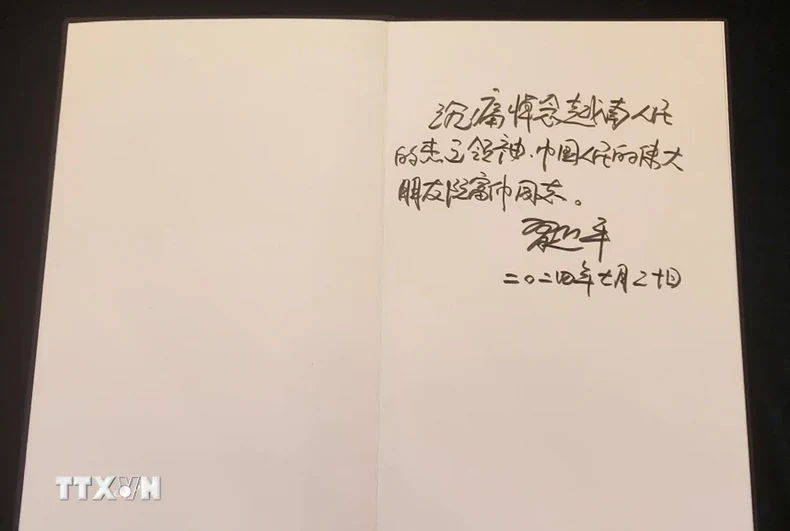 沉痛悼念越南人民
的杰出领袖、中国人民的伟大
朋友阮富仲同志。
习近平
二〇二四年七月二十日
TTXVN